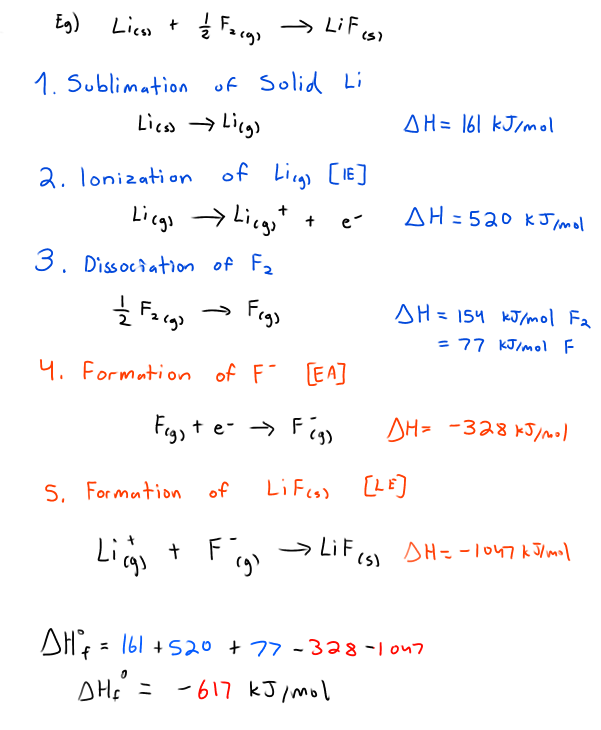 Eg) Li(s) + 1/2 F₂(g) → LiF(s)
1. Sublimation of Solid Li
Li(s) → Li(g) ΔH = 161 kJ/mol
2. Ionization of Li(g) [IE]
Li(g) → Li(g)⁺ + e⁻ ΔH = 520 kJ/mol
3. Dissociation of F₂
1/2 F₂(g) → F(g) ΔH = 154 kJ/mol F₂
= 77 kJ/mol F
4. Formation of F⁻ [EA]
F(g) + e⁻ → F⁻(g) ΔH = -328 kJ/mol
5. Formation of LiF(s) [LE]
Li⁺(g) + F⁻(g) → LiF(s) ΔH = -1047 kJ/mol
ΔH°f = 161 + 520 + 77 - 328 - 1047
ΔHf° = -617 kJ/mol